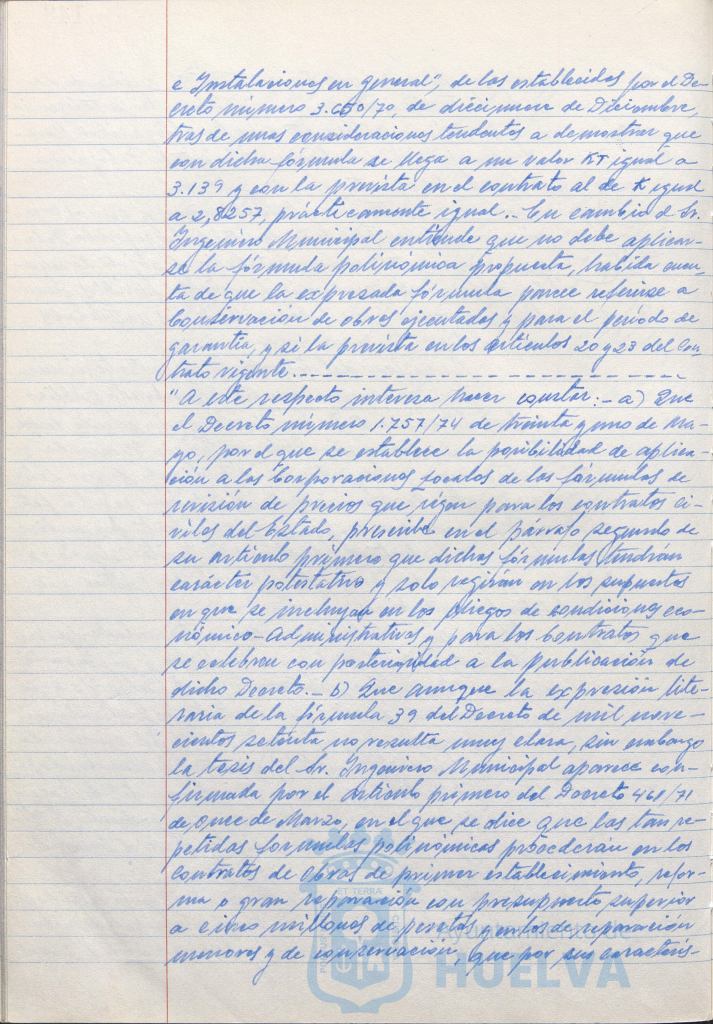 e Instalaciones en general", de las establecidas por el De-
creto número 3.650/70, de diecinueve de Diciembre,
tras de unas consideraciones tendentes a demostrar que
con dicha fórmula se llega a un valor KT igual a
3.139 y con la prevista en el contrato al de K igual
a 2,8257, prácticamente igual.- En cambio el Sr.
Ingeniero Municipal entiende que no debe aplicar-
se la fórmula polinómica propuesta, habida cuen-
ta de que la expresada fórmula parece referirse a
Conservación de obras ejecutadas y para el período de
garantía, y si la prevista en los artículos 20 y 23 del Con-
trato vigente.-------------------------
"A este respecto interesa hacer constar:- a) Que
el Decreto número 1.757/74 de treinta y uno de Ma-
yo, por el que se establece la posibilidad de aplica-
ción a las Corporaciones Locales de las fórmulas de
revisión de precios que rigen para los contratos ci-
viles del Estado, prescribe en el párrafo segundo de
su artículo primero que dichas fórmulas tendrán
carácter potestativo y solo regirán en los supuestos
en que se incluyan en los pliegos de condiciones eco-
nómico-Administrativas y para los Contratos que
se celebren con posterioridad a la publicación de
dicho Decreto.- b) Que aunque la expresión lite-
raria de la fórmula 39 del Decreto de mil nove-
cientos setenta no resulta muy clara, sin embargo
la tesis del Sr. Ingeniero Municipal aparece con-
firmada por el artículo primero del Decreto 461/71
de once de Marzo, en el que se dice que las tan re-
petidas fórmulas polinómicas procederán en los
contratos de obras de primer establecimiento, refor-
ma o gran reparación con presupuesto superior
a cinco millones de pesetas y en los de reparación
menores y de conservación, que por sus caracterís-
PORTUS
ET TERRAE
Ayuntamiento
HUELVA